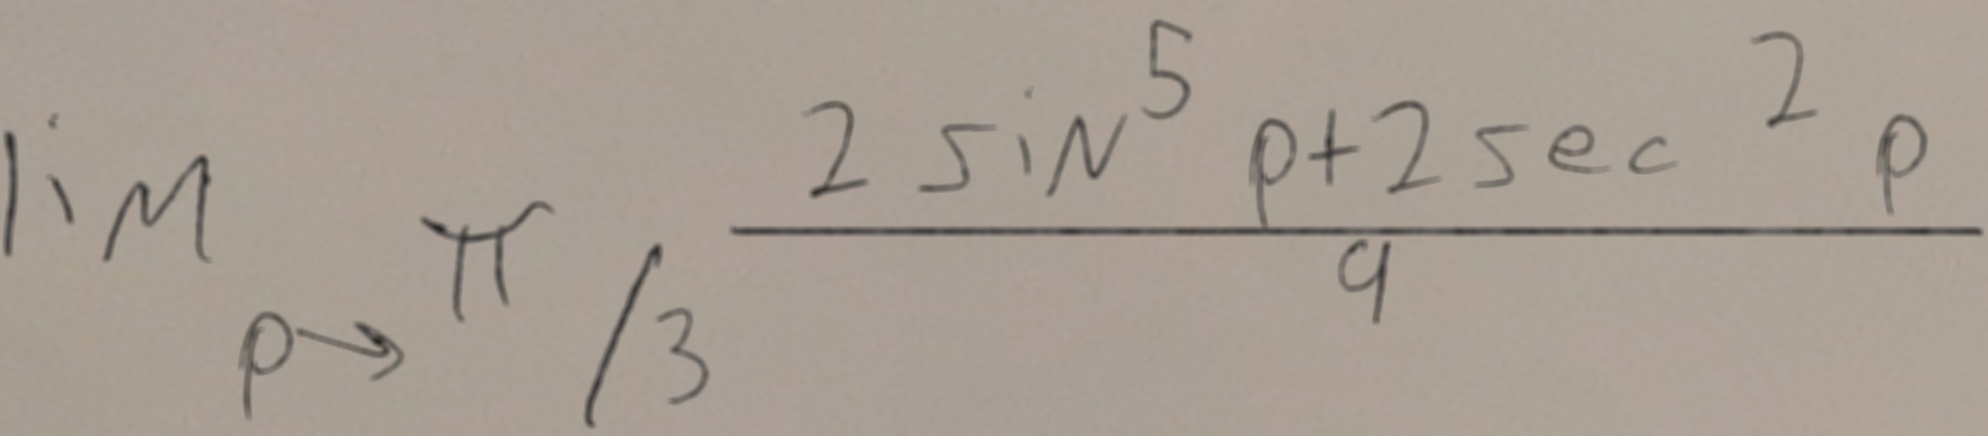 \lim_{p \to \pi/3} \frac{2 \sin^5 p + 2 \sec^2 p}{9}